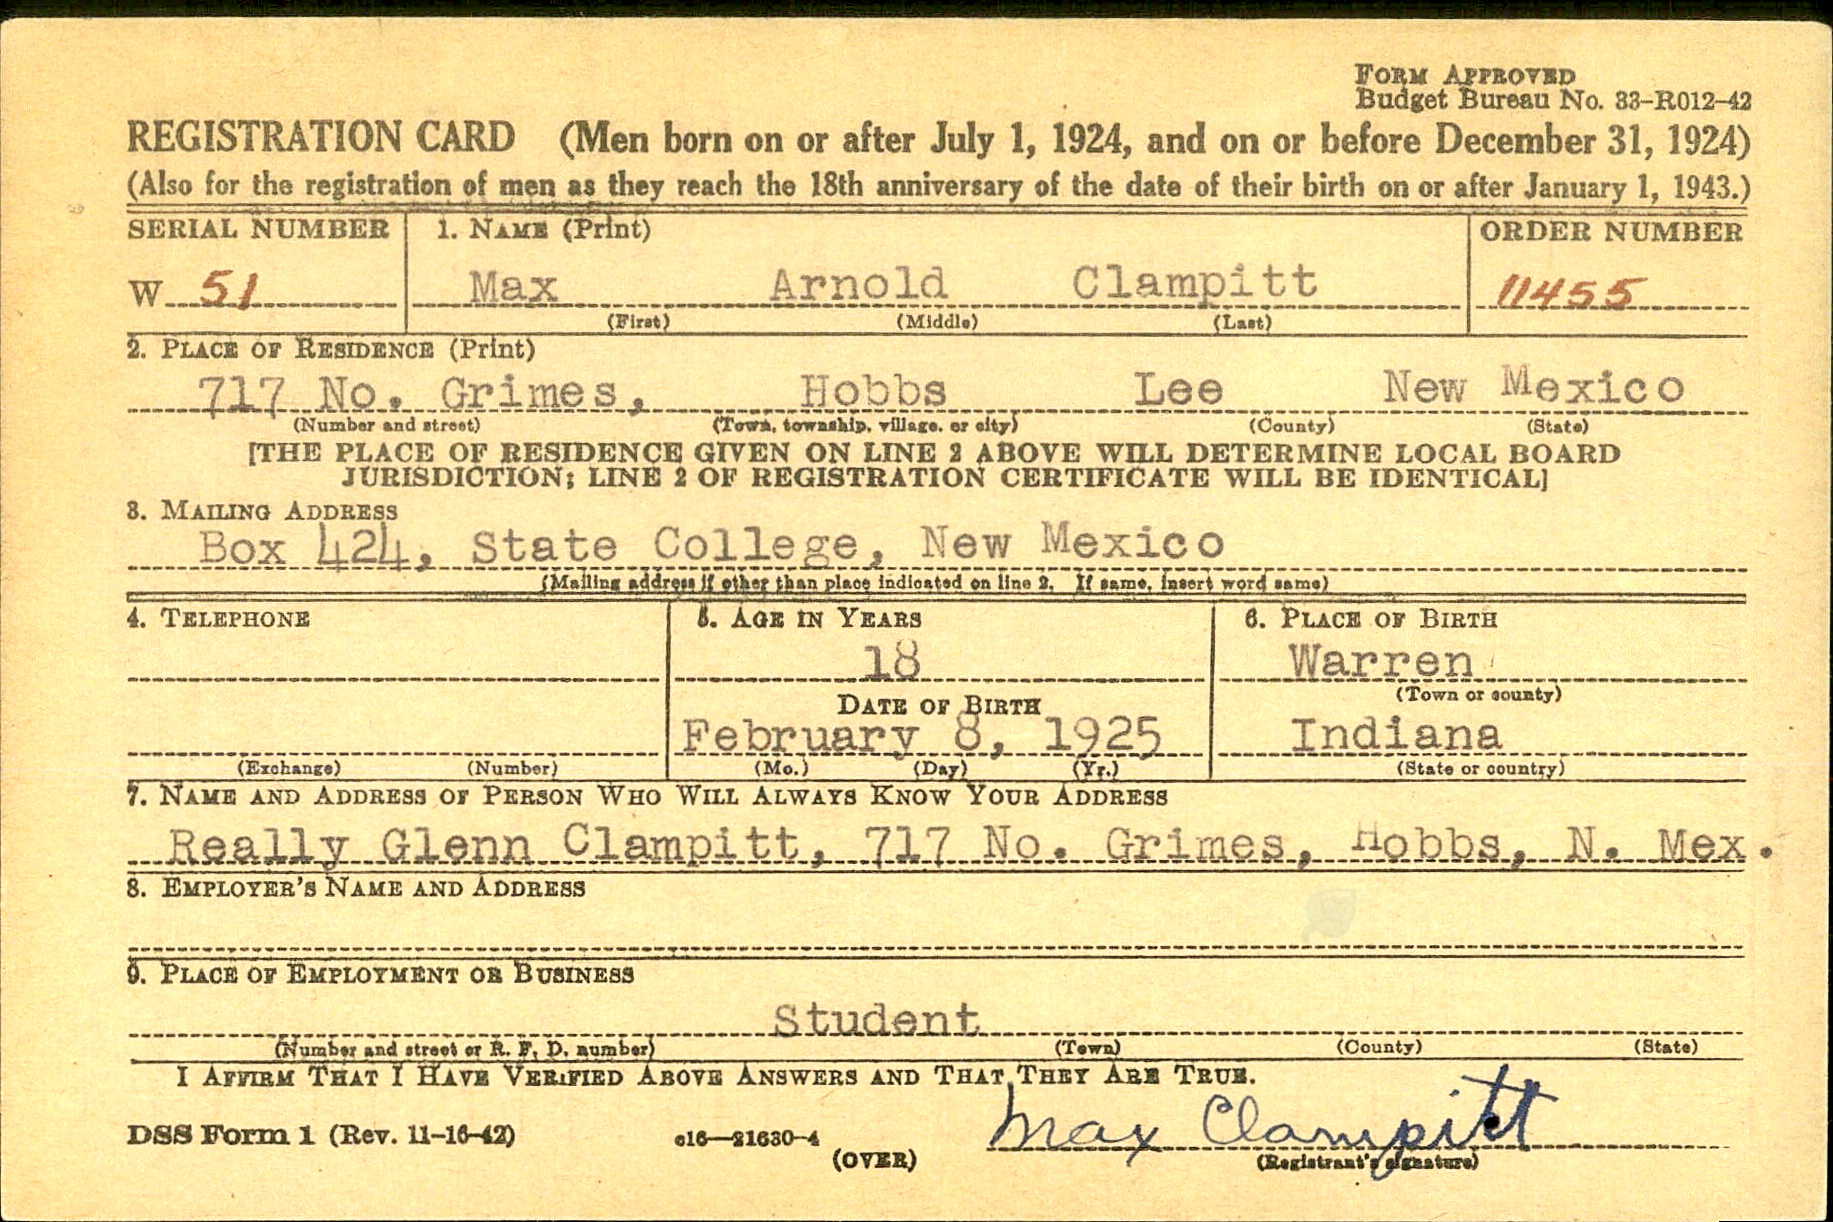 FORM APPROVED
Budget Bureau No. 33-R012-42
REGISTRATION CARD (Men born on or after July 1, 1924, and on or before December 31, 1924)
(Also for the registration of men as they reach the 18th anniversary of the date of their birth on or after January 1, 1943.)
SERIAL NUMBER 1. NAME (Print) ORDER NUMBER
W 51 Max Arnold Clampitt 11455
(First) (Middle) (Last)
2. PLACE OF RESIDENCE (Print)
717 No. Grimes, Hobbs Lee New Mexico
(Number and street) (Town, township, village, or city) (County) (State)
[THE PLACE OF RESIDENCE GIVEN ON LINE 2 ABOVE WILL DETERMINE LOCAL BOARD
JURISDICTION; LINE 2 OF REGISTRATION CERTIFICATE WILL BE IDENTICAL]
3. MAILING ADDRESS
Box 424, State College, New Mexico
(Mailing address if other than place indicated on line 2. If same, insert word same)
4. TELEPHONE 5. AGE IN YEARS 6. PLACE OF BIRTH
18 Warren
DATE OF BIRTH (Town or county)
February 8, 1925 Indiana
(Exchange) (Number) (Mo.) (Day) (Yr.) (State or country)
7. NAME AND ADDRESS OF PERSON WHO WILL ALWAYS KNOW YOUR ADDRESS
Really Glenn Clampitt, 717 No. Grimes, Hobbs, N. Mex.
8. EMPLOYER'S NAME AND ADDRESS
9. PLACE OF EMPLOYMENT OR BUSINESS
Student
(Number and street or R. F. D. number) (Town) (County) (State)
I AFFIRM THAT I HAVE VERIFIED ABOVE ANSWERS AND THAT THEY ARE TRUE.
DSS Form 1 (Rev. 11-16-42) c16—21630-4 Max Clampitt
(OVER) (Registrant's signature)